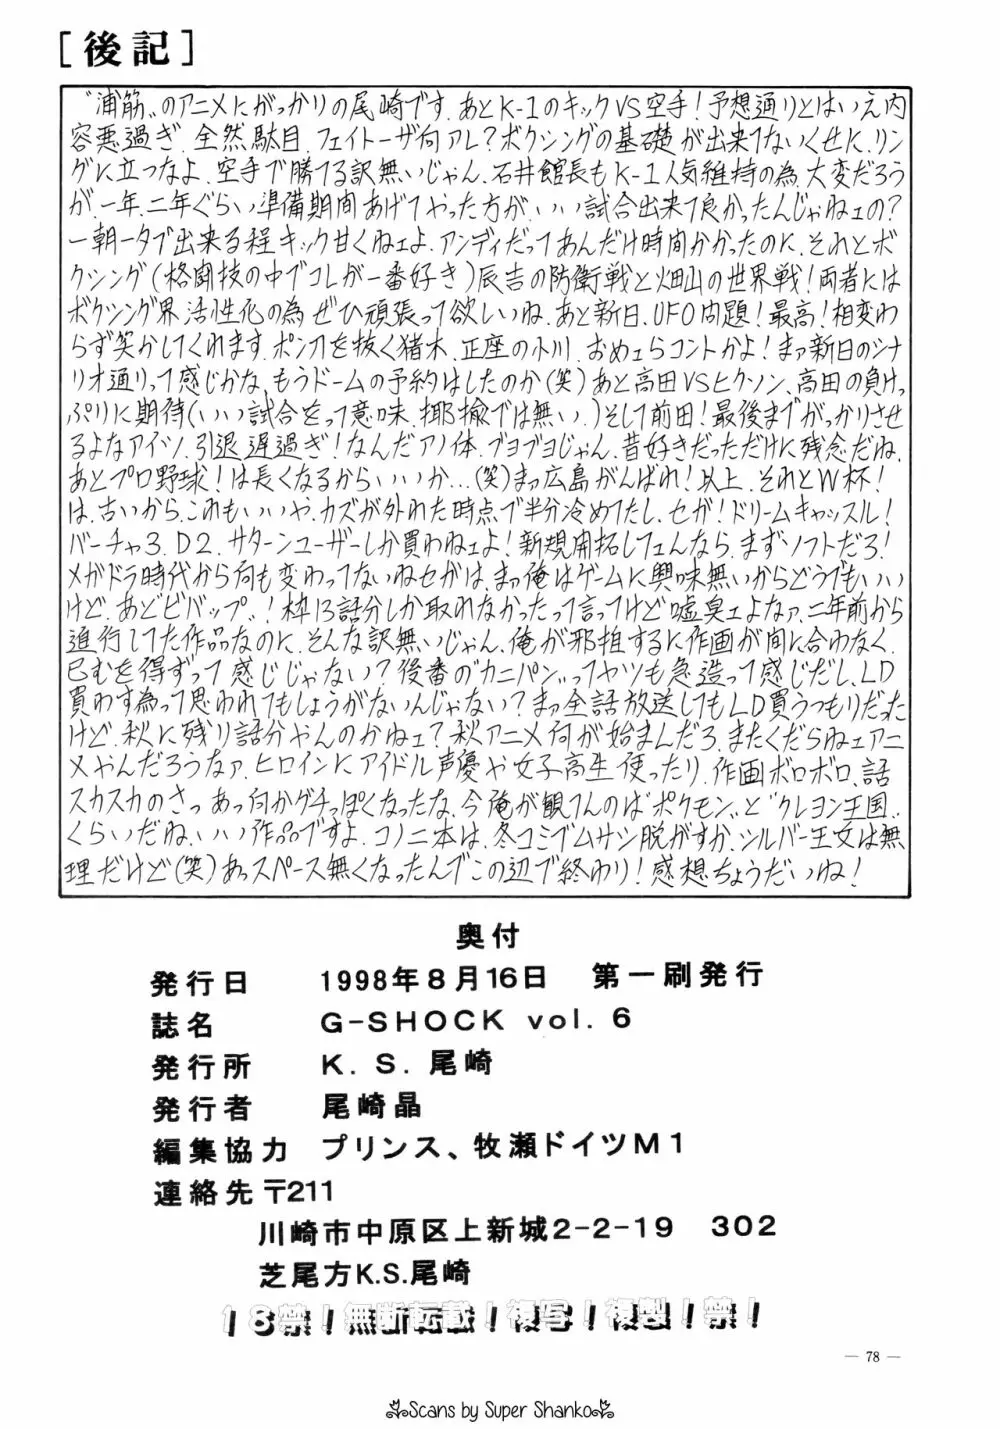 [後記]
"浦筋"のアニメにがっかりの尾崎です。あとK-1のキックVS空手!予想通りとはいえ内
容悪過ぎ、全然駄目、フェイトーザ何アレ?ボクシングの基礎が出来てないくせに、リン
グに立つなよ、空手で勝てる訳無いじゃん、石井館長もK-1人気維持の為、大変だろう
が、一年、二年ぐらい準備期間あげてやった方が、いい試合出来て良かったんじゃねェの?
一朝一夕で出来る程キック甘くねェよ、アンディだってあんだけ時間かかったのに、それとボ
クシング(格闘技の中でコレが一番好き)辰吉の防衛戦と畑山の世界戦!両者には
ボクシング界活性化の為ぜひ頑張って欲しいね、あと新日、UFO問題!最高!相変わ
らず笑かしてくれます、ポン刀を抜く猪木、正座の小川、おめェらコントかよ!まァ新日のシナ
リオ通りって感じかな、もうドームの予約はしたのか(笑)あと高田VSヒクソン、高田の負けっ
ぷりに期待(いい試合をって意味、揶揄では無い。)そして前田!最後までがっかりさせ
るよなアイツ、引退遅過ぎ!なんだアノ体、ブヨブヨじゃん、昔好きだっただけに残念だね、
あとプロ野球!は長くなるからいいか…(笑)まァ広島がんばれ!以上、それとW杯!
は、古いから、これもいいや、カズが外れた時点で半分冷めてたし、セガ!ドリームキャッスル!
バーチャ3、D2、サターンユーザーしか買わねェよ!新規開拓してェんなら、まずソフトだろ!
メガドラ時代から何も変わってないねセガは、まァ俺はゲームに興味無いからどうでもいい
けど、あとビバップ"!枠13話分しか取れなかったって言ってけど嘘臭ェよなァ、二年前から
進行してた作品なのに、そんな訳無いじゃん、俺が邪推するに作画が間に合わなく、
已むを得ずって感じじゃない?後番の"カニパン"ってヤツも急造って感じだし、LD
買わす為って思われてもしょうがないんじゃない?まァ全話放送してもLD買うつもりだった
けど、秋に残り話分やんのかねェ?秋アニメ何が始まんだろ、またくだらねェアニ
メやんだろうなァ、ヒロインにアイドル声優や女子高生使ったり、作画ボロボロ、話
スカスカのさっ、あっ何かグチっぽくなったな、今俺が観てんのは"ポケモン"と"クレヨン王国"
くらいだね、いい作品ですよ、コノ二本は、冬コミでムサシ脱がすか、シルバー王女は無
理だけど(笑)あっスペース無くなったんでこの辺で終わり!感想ちょうだいね!
奥付
発行日 1998年8月16日 第一刷発行
誌名 G-SHOCK vol.6
発行所 K.S.尾崎
発行者 尾崎晶
編集協力 プリンス、牧瀬ドイツM1
連絡先 〒211
川崎市中原区上新城2-2-19 302
芝尾方K.S.尾崎
18禁!無断転載!複写!複製!禁!
— 78 —
Scans by Super Shanko